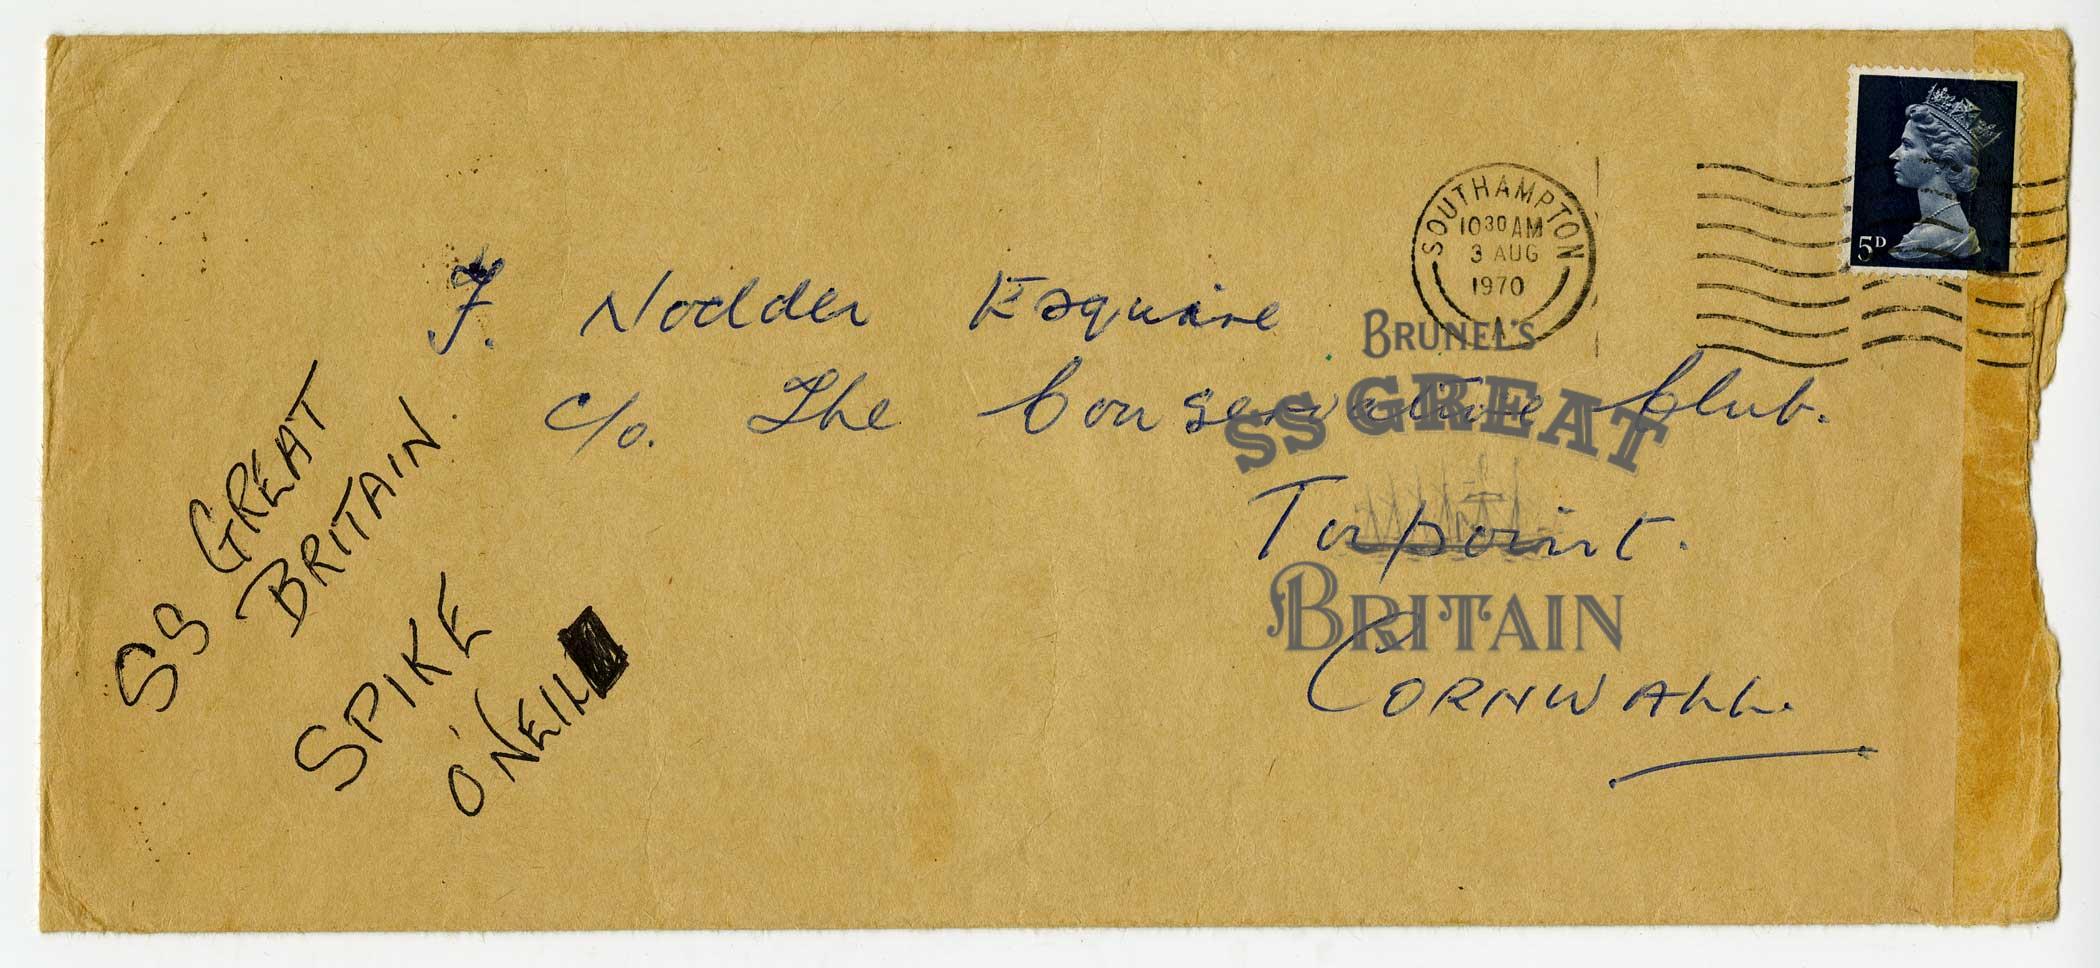 5D
SOUTHAMPTON
10 30 AM
3 AUG
1970
A
F. Nodder Esquire
c/o. The Conservative Club.
Torpoint.
CORNWALL.
SS GREAT
BRITAIN.
SPIKE
O'NEILL
BRUNEL'S
SS GREAT
BRITAIN